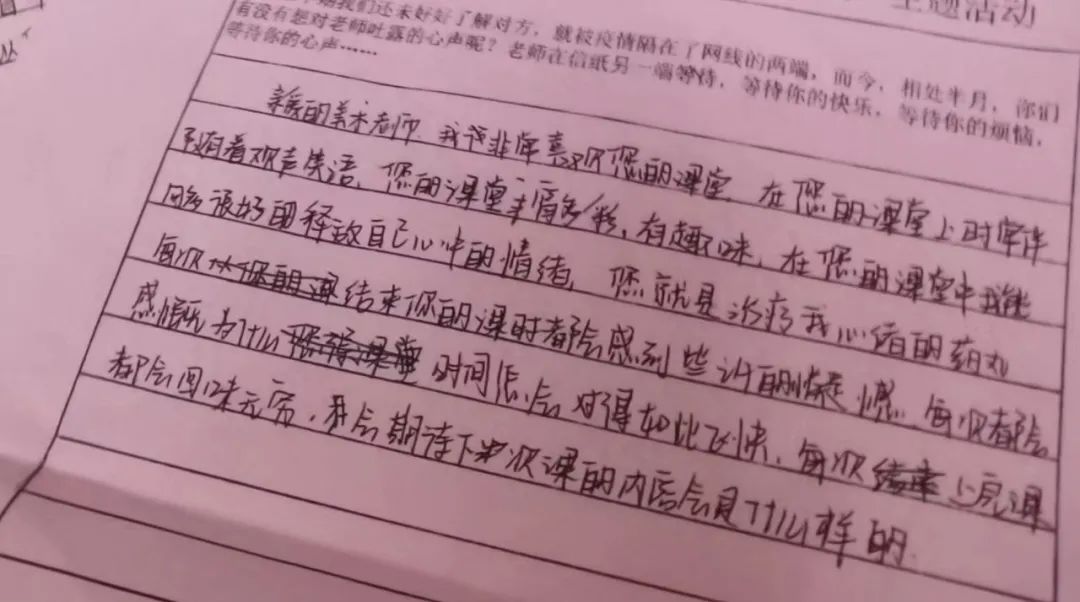 主题活动
我们还未好好了解对方，就被疫情隔在了网线的两端，而今，相处半月，你们
有没有想对老师吐露的心声呢？老师在信纸另一端等待，等待你的快乐，等待你的烦恼，
等待你的心声……
亲爱的美术老师，我非常喜欢您的课堂，在您的课堂上时常伴
随着欢声笑语，您的课堂丰富多彩，有趣味，在您的课堂中我能
很好的释放自己心中的情绪，您就是治疗我心绪的药丸
每次结束你的课时都会感到些许的遗憾，每次都会
感慨为什么时间总会过得如此飞快，每次上完课
都会回味无穷，并会期待下次课的内容会是什么样的